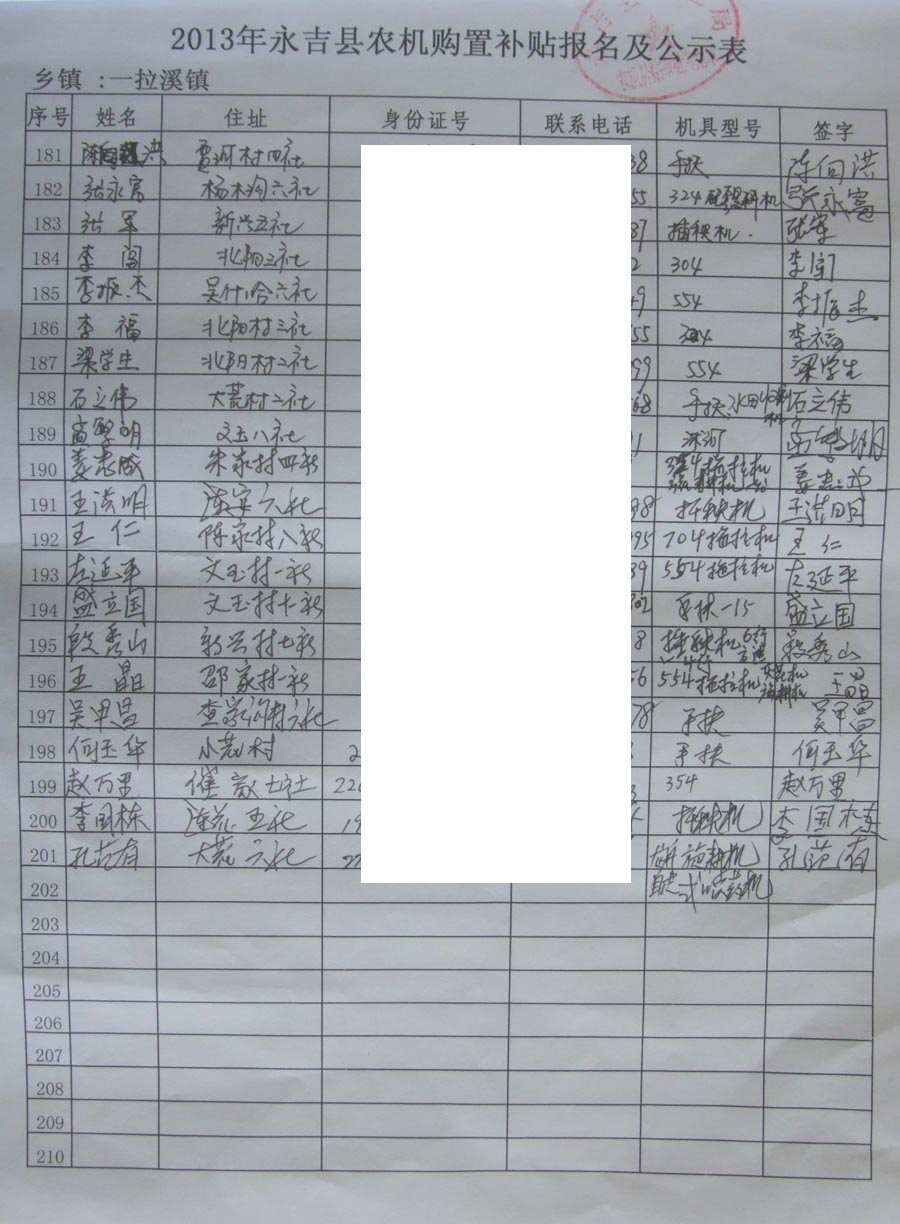 2013年永吉县农机购置补贴报名及公示表
乡镇 :一拉溪镇
序号 姓名 住址 身份证号 联系电话 机具型号 签字
181 村四社 38 手扶 陈向洪
182 张永富 杨木沟六社 55 324 机 张永富
183 张军 新兴五社 87 插秧机. 张军
184 李闯 北阳三社 2 304 李闯
185 李振杰 吴什哈六社 49 554 李振杰
186 李福 北阳村三社 55 304 李福
187 梁学生 北阳村二社 99 554 梁学生
188 石立伟 大荒村二社 68 手扶、水田 石立伟
189 明 文玉八社 1 明
190 姜忠成 朱家村四社 拖拉机 姜忠
191 王洪明 六社 98 插秧机 王洪明
192 王仁 陈家村八社 95 704拖拉机 王仁
193 左延平 文玉村一社 39 554拖拉机 左延平
194 盛立国 文玉村十一社 手扶-15 盛立国
195 段秀山 新兴村七社 8 插秧机 6行 段秀山
196 王晶 邵家村一社 56 554拖拉机 王晶
197 吴甲昌 六社 78 手扶 吴甲昌
198 何玉华 小荒村 2 手扶 何玉华
199 赵万里 七社 22 3 354 赵万里
200 李国栋 五社 19 插秧机 李国栋
201 孔范有 大荒六社 22 旋耕机 孔范有
202 式喷药机
203
204
205
206
207
208
209
210